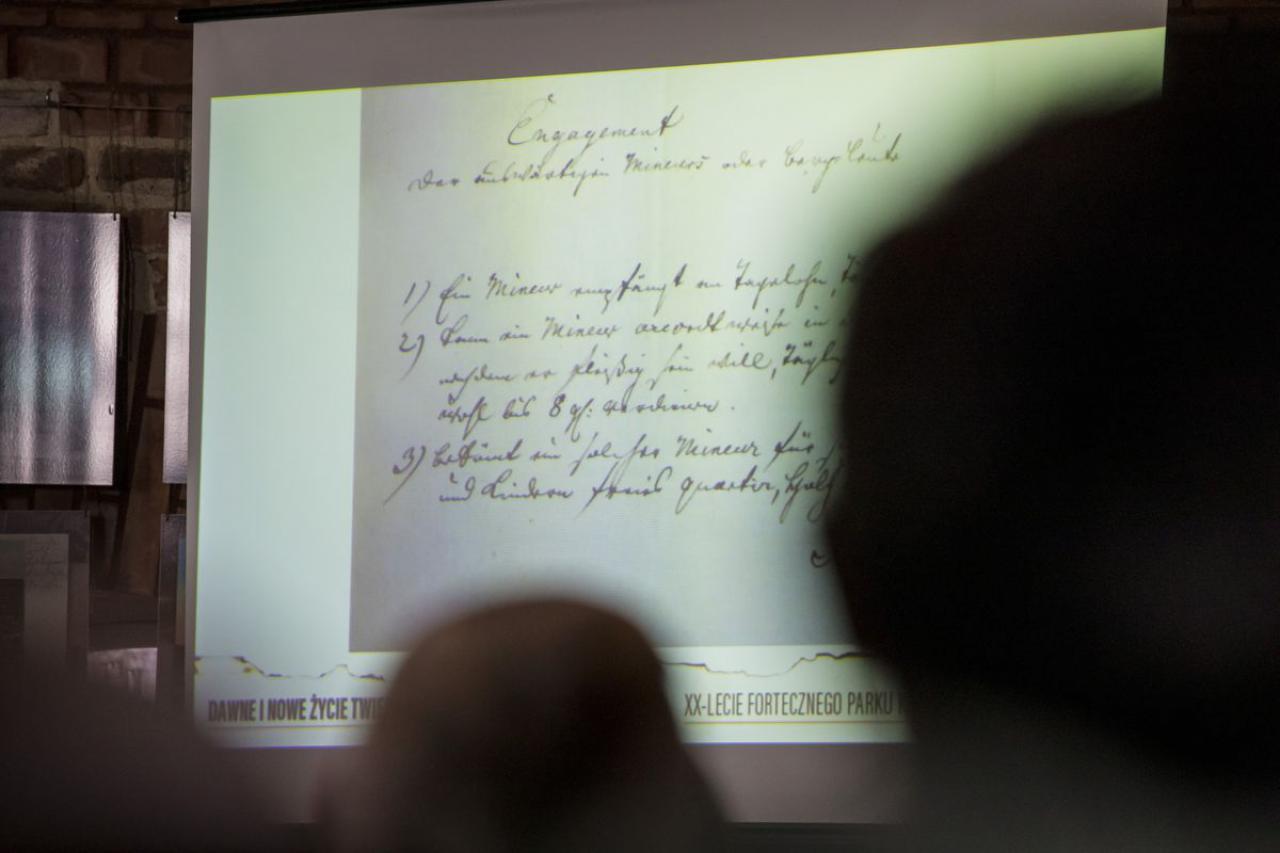 Engagement
der auswärtigen Mineurs oder Bergleute
1) Ein Mineur empfängt an Tagelohn,
2) Kann ein Mineur accordtweise in
nachdem er fleißig sein will, tägl
wohl bis 8 gl: verdienen.
3) Bekömt ein solcher Mineur für
und Kindern freies quartier,
DAWNE I NOWE ŻYCIE TWIE
XX-LECIE FORTECZNEGO PARKU